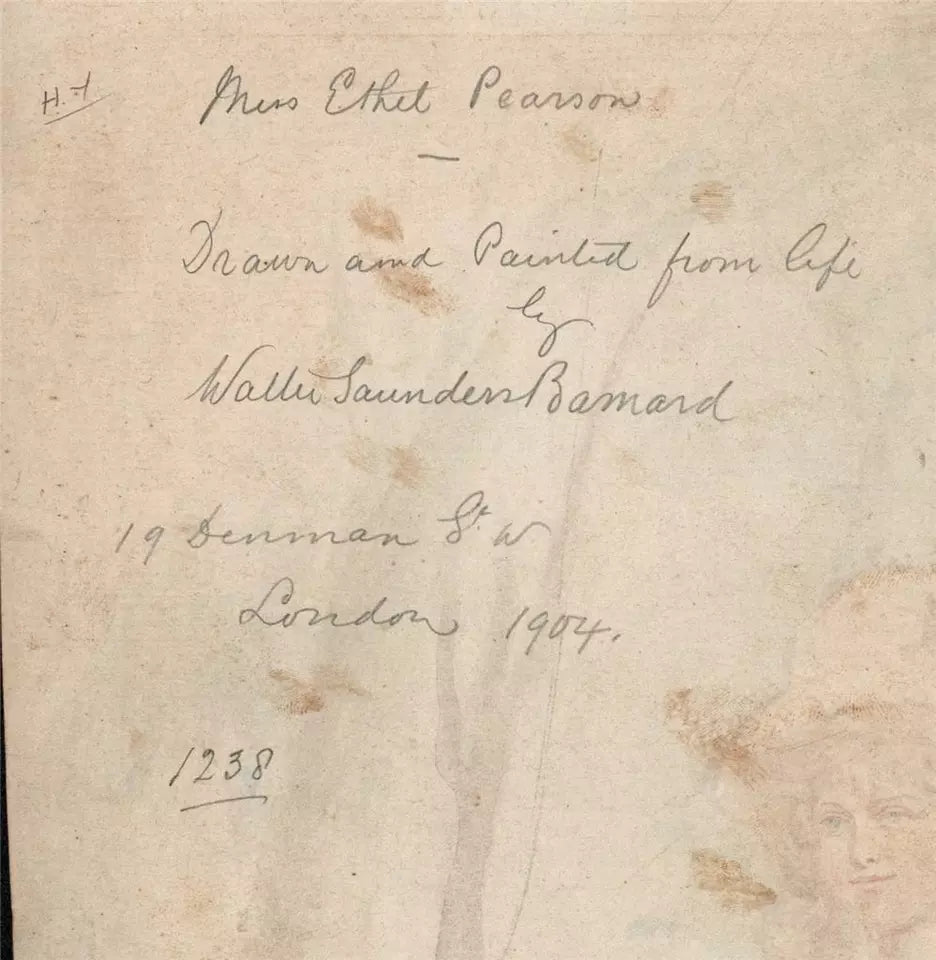 H.
Miss Ethel Pearson
—
Drawn and Painted from life
by
Walter Saunders Barnard
19 Denman St. W
London 1904.
1238